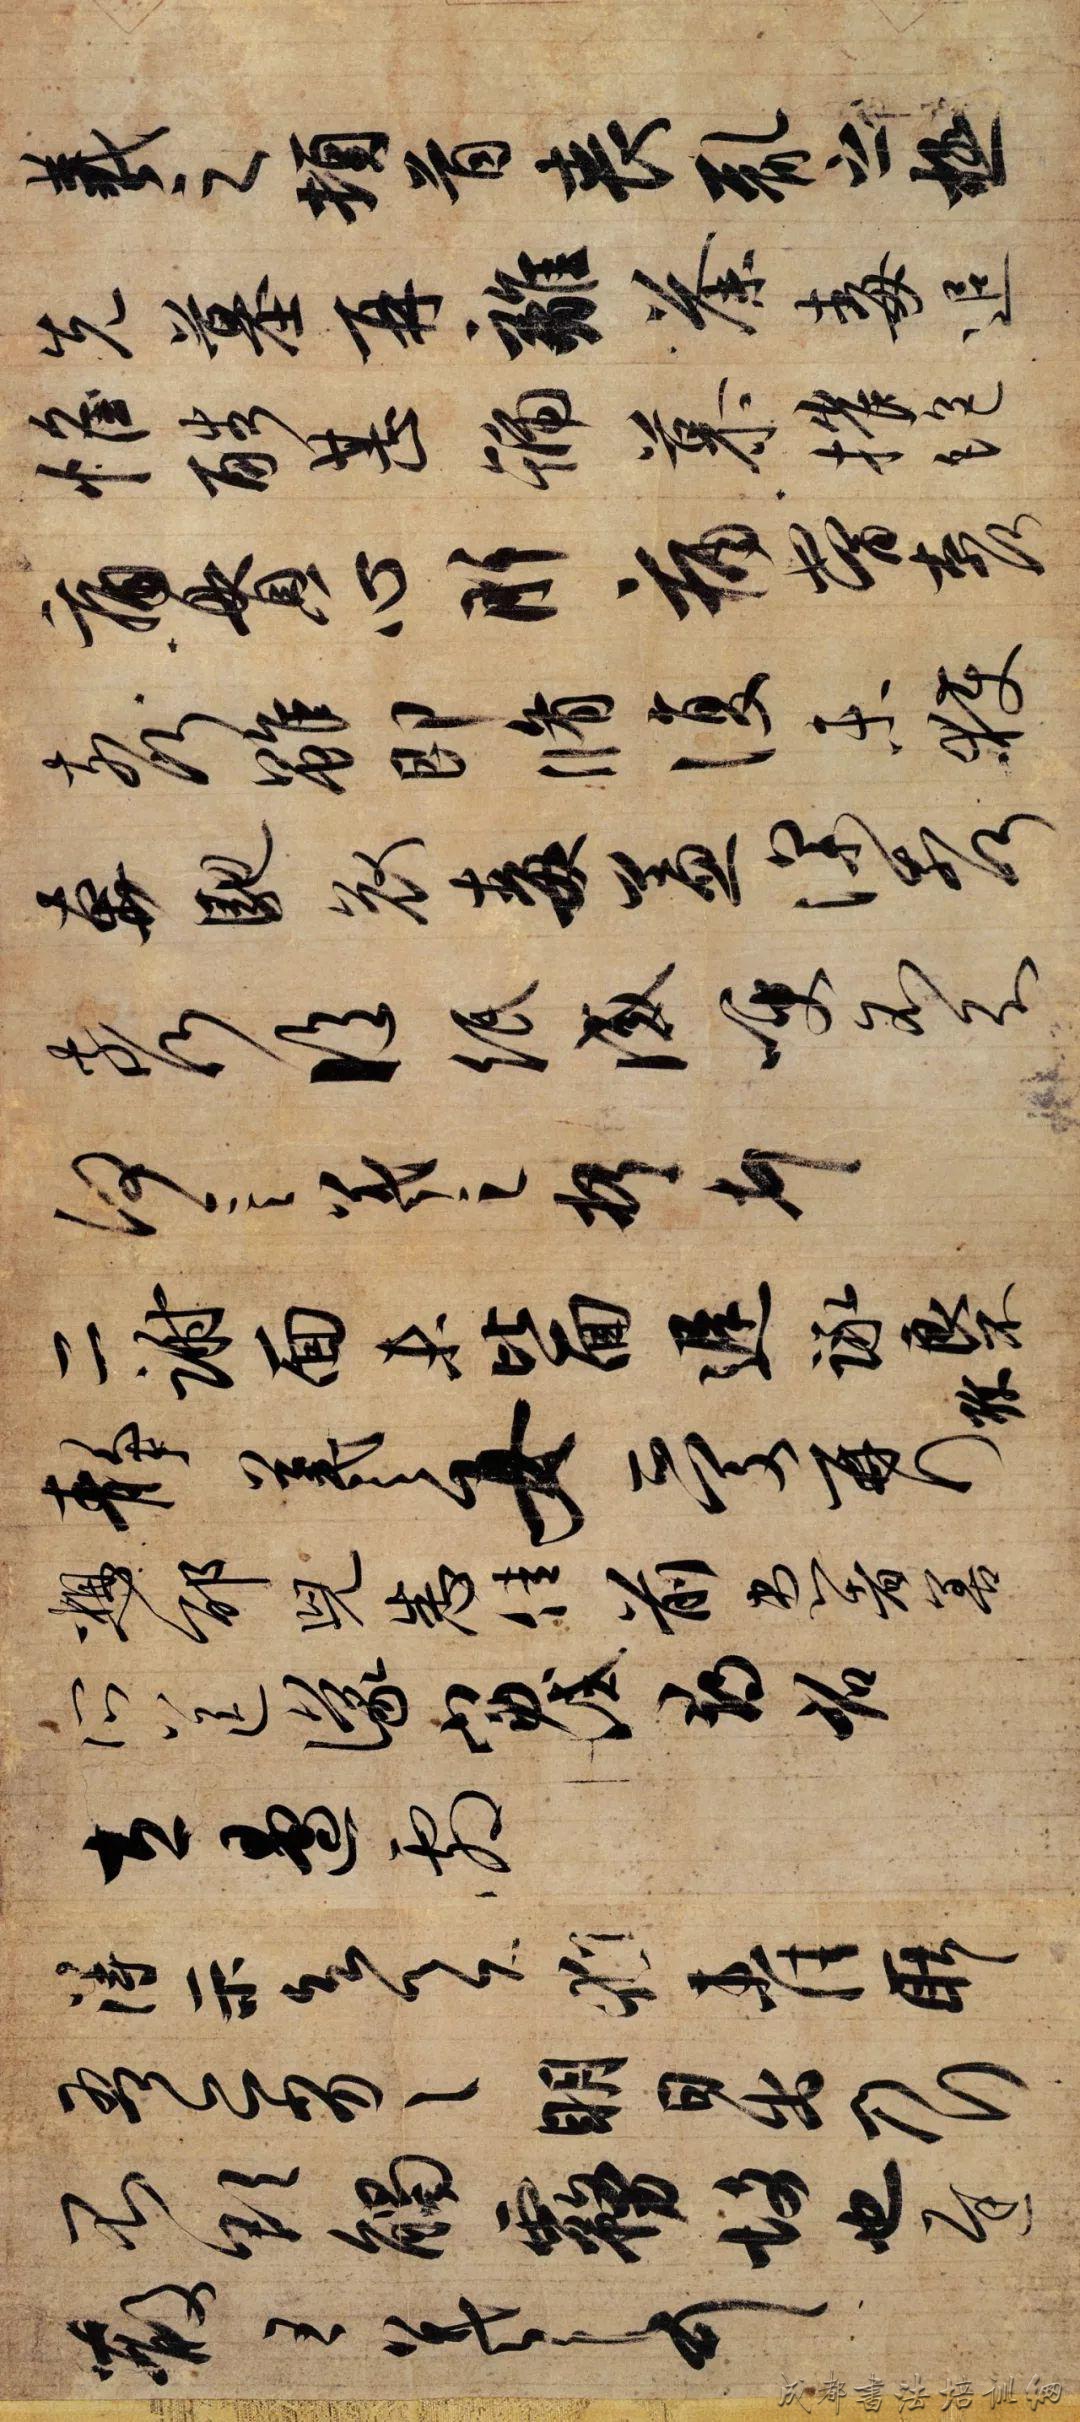 羲之頓首喪亂之極
先墓再離荼毒追
惟酷甚號慕摧絶
痛貫心肝痛當奈何
奈何雖即脩復未獲
奔馳哀毒益深奈何
奈何臨紙感哽不知
何言羲之頓首頓首
二謝面未比面遲詠良不
靜羲之女愛再拜
想邵兒悉佳前患者善
所送議當試尋省
左邊劇
得示知足下猶未佳耿耿
吾亦劣劣明日出乃行
不欲觸霧故也遲
散王羲之頓首
成都書法培训網